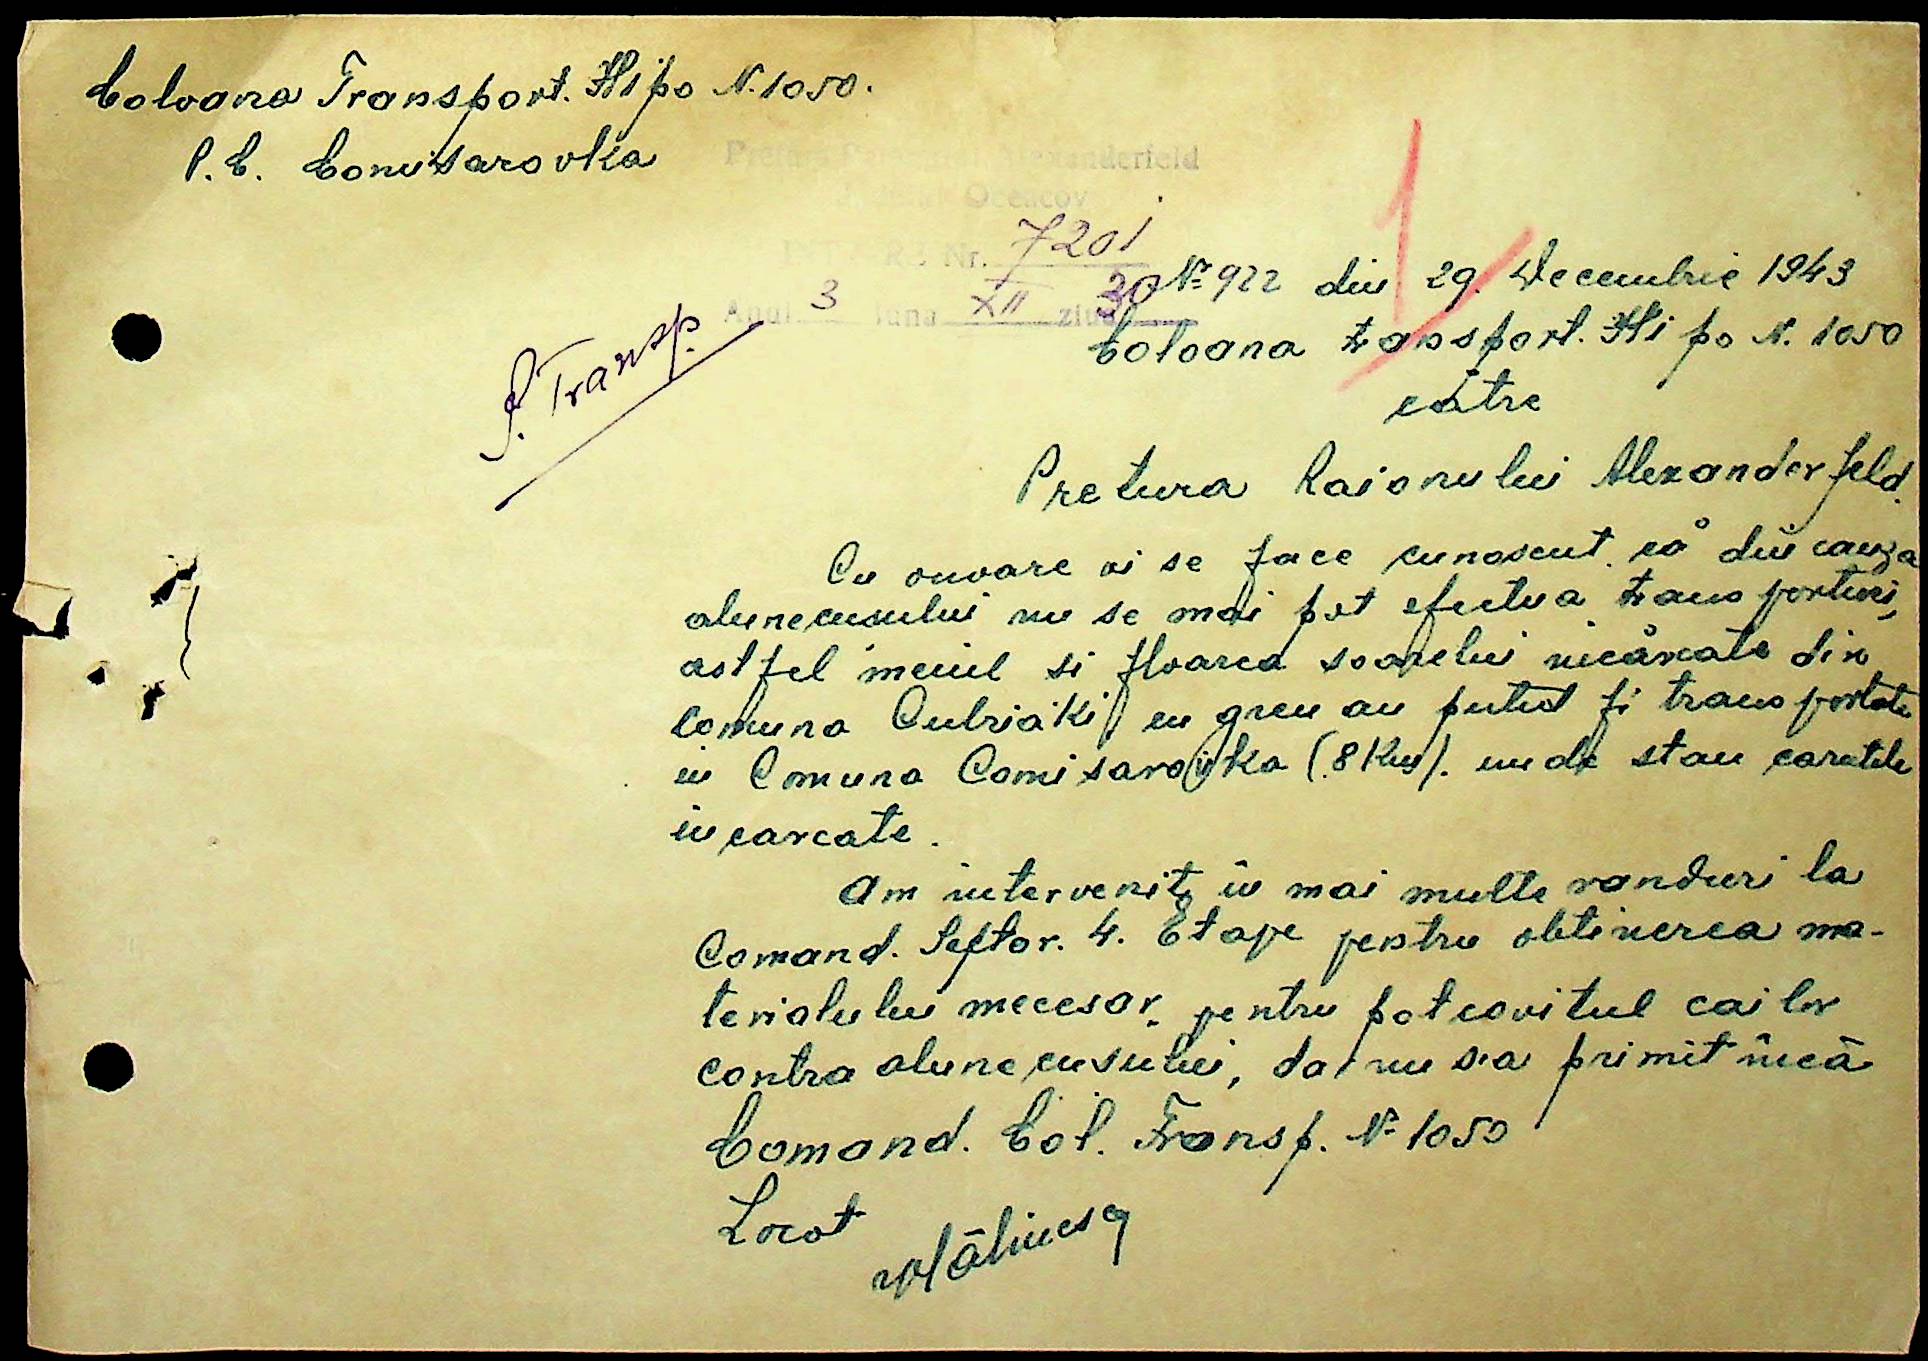 Coloana Transport. Hipo N. 1050.
P.C. Comisarovka
Pretura Alexanderfeld
Oceacov
Nr. 7201
Anul 3 luna XII ziua 30
S. Transp.
1
Nº 922 din 29. Decembrie 1943
Coloana transport. Hipo N. 1050
către
Pretura Raionului Alexanderfeld.
Cu onoare vi se face cunoscut că din cauza
alunecusului nu se mai pot efectua transporturi,
astfel meiul si floarea soarelui incărcate din
Comuna Cubriaki cu greu au putut fi transportate
in Comuna Comisarovka (8 Km). unde stau carutele
incarcate.
Am intervenit in mai multe randuri la
Comand. Sector. 4. Etape pentru obtinerea ma-
terialului necesar pentru potcovitul cailor
contra alunecusului, dar nu s-a primit încă
Comand. Col. Transp. Nº 1050
Locot